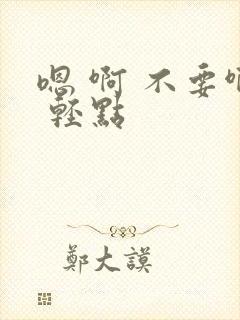 嗯 啊 不要
輕點
鄭大謨